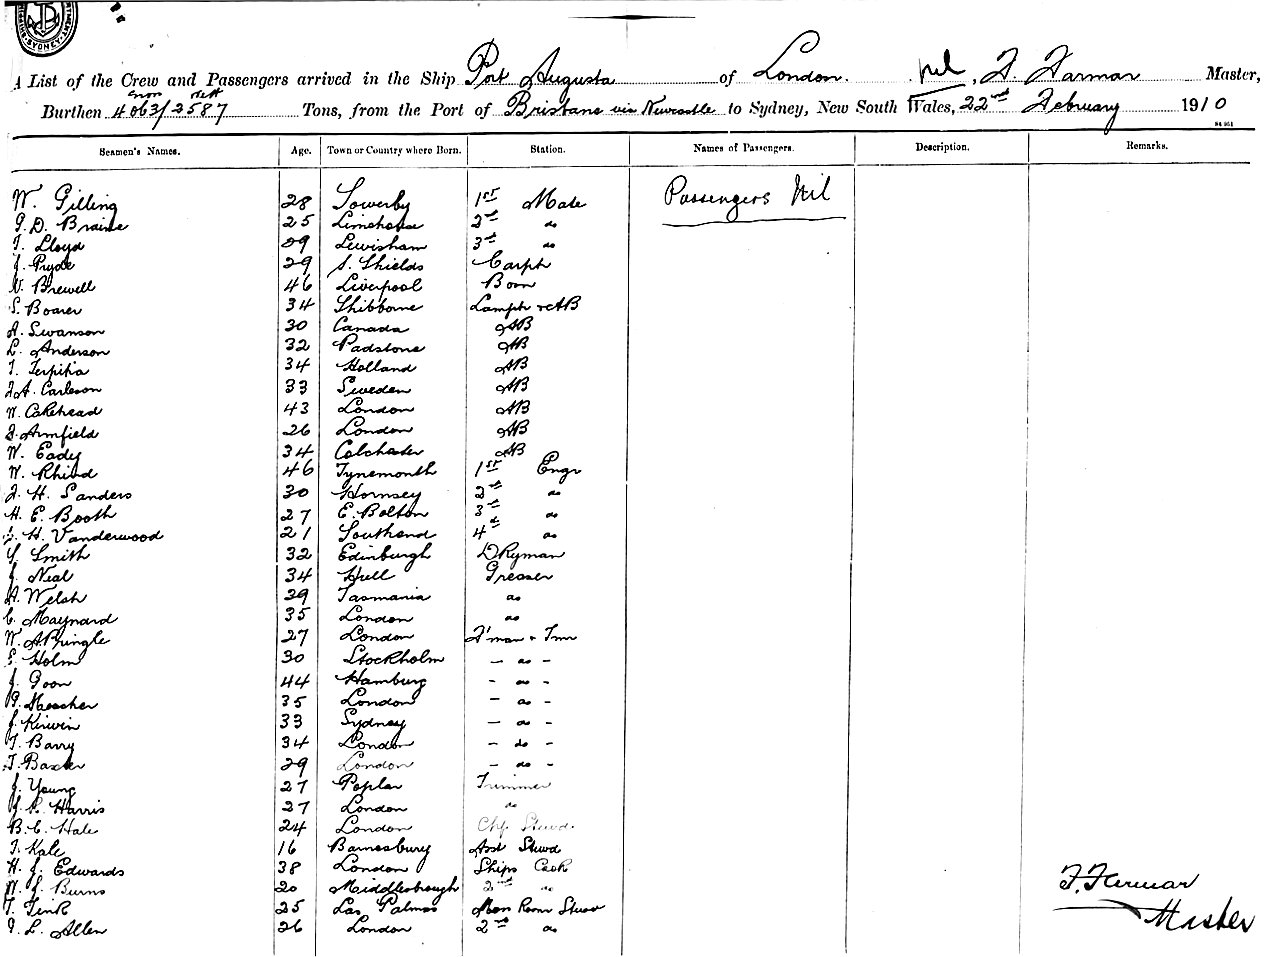 SYDNEY
A List of the Crew and Passengers arrived in the Ship Port Augusta of London. nil, F. Farmar Master,
Burthen Gross 4063/ Nett 2587 Tons, from the Port of Brisbane via Newcastle to Sydney, New South Wales, 22nd February 1910
Seamen's Names. Age. Town or Country where Born. Station. Names of Passengers. Description. Remarks.
W. Gilling 28 Sowerby 1st Mate Passengers Nil
G. D. Braine 25 Limehouse 2nd do
T. Lloyd 29 Lewisham 3rd do
J. Pryde 29 S. Shields Carptr
W. Brewell 46 Liverpool Bosn
S. Boarer 34 Shibborne Lamptr & AB
A. Swanson 30 Canada AB
L. Anderson 32 Padstone AB
T. Terpitia 34 Holland AB
J. A. Carlsson 33 Sweden AB
W. Cakehead 43 London AB
J. Armfield 26 London AB
W. Eady 34 Colchester AB
W. Rhind 46 Tynemouth 1st Engr
J. H. Sanders 30 Hornsey 2nd do
H. E. Booth 27 E. Bolton 3rd do
H. Vanderwood 21 Southend 4th do
Y. Smith 32 Edinburgh DKyman
J. Neal 34 Hull Greaser
A. Welsh 39 Tasmania do
C. Maynard 35 London do
W. A. Pringle 27 London F'man & Tmr
E. Holm 30 Stockholm - do -
J. Goon 44 Hamburg - do -
G. Mescher 35 London - do -
J. Kirwin 33 Sydney - do -
T. Barry 34 London - do -
T. Baxter 29 London - do -
J. Young 27 Poplar Trimmer
J. P. Harris 27 London do
B. C. Hale 24 London Chf Stewd.
T. Kale 16 Barnesbury Asst Stewd
H. J. Edwards 38 London Ships Cook
W. J. Burns 20 Middlesborough 2nd do
T. Fink 25 Las Palmas Mess Room Stewd
G. L. Allen 26 London 2nd do
F. Farmar
Master